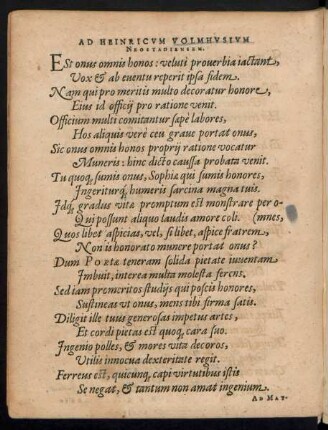 AD HEINRICVM VOLMHVSIVM
NEOSTADIENSEM.
ESt onus omnis honos: veluti prouerbia iactant,
Vox & ab euentu reperit ipsa fidem.
Nam qui pro meritis multo decoratur honore,
Eius id officij pro ratione venit.
Officium multi comitantur sæpè labores,
Hos aliquis verè ceu graue portat onus,
Sic onus omnis honos proprij ratione vocatur
Muneris: hinc dicto caussa probata venit.
Tu quoq, sumis onus, Sophia qui sumis honores,
Ingeriturq, humeris sarcina magna tuis.
Idq, gradus vitæ promptum est monstrare per o-
Qui possunt aliquo laudis amore coli. (mnes,
Quos libet aspicias, vel, si libet, aspice fratrem,
Non is honorato munere portat onus?
Dum POETÆ teneram solida pietate iuuentam
Imbuit, interea multa molesta ferens.
Sed iam promeritos studijs quòd poscis honores,
Sustineas vt onus, mens tibi firma satis.
Diligit ille tuus generosas impetus artes,
Et cordi pietas est quoq, cara suo.
Ingenio polles, & mores vitæ decoros,
Vtilis innocua dexteritate regit.
Ferreus est, quicunq, capi virtutibus istis
Se negat, & tantum non amat ingenium.
AD MAT-